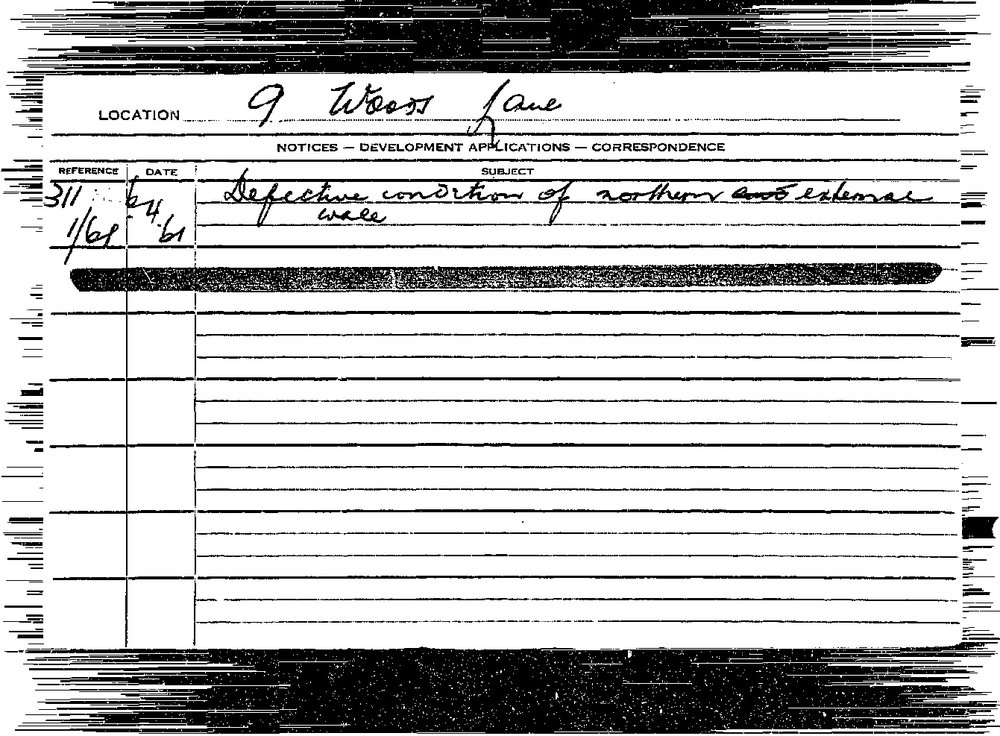 LOCATION 9 Woods Lane
NOTICES — DEVELOPMENT APPLICATIONS — CORRESPONDENCE
REFERENCE DATE SUBJECT
311 6 Defective condition of northern external
1/61 4 wall
61